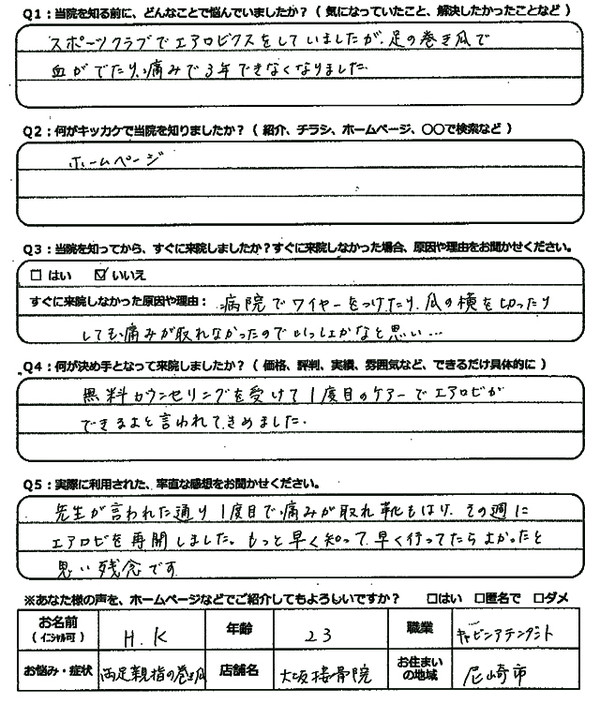 Q1：当院を知る前に、どんなことで悩んでいましたか？（ 気になっていたこと、解決したかったことなど ）
スポーツクラブでエアロビクスをしていましたが、足の巻き爪で
血がでたり、痛みで3年できなくなりました。
Q2：何がキッカケで当院を知りましたか？（ 紹介、チラシ、ホームページ、〇〇で検索など ）
ホームページ
Q3：当院を知ってから、すぐに来院しましたか？すぐに来院しなかった場合、原因や理由をお聞かせください。
☐ はい ☑ いいえ
すぐに来院しなかった原因や理由： 病院でワイヤーをつけたり、爪の横を切ったり
しても痛みが取れなかったので いっしょかなと思い…
Q4：何が決め手となって来院しましたか？（ 価格、評判、実績、雰囲気など、できるだけ具体的に ）
無料カウンセリングを受けて1度目のケアーでエアロビが
できるよと言われてきめました。
Q5：実際に利用された、率直な感想をお聞かせください。
先生が言われた通り1度目で痛みが取れ靴もはけ、その週に
エアロビを再開しました。もっと早く知って早く行ってたらよかったと
思い残念です
※あなた様の声を、ホームページなどでご紹介してもよろしいですか？ ☐はい ☐匿名で ☐ダメ
お名前（イニシャル可） H.K 年齢 23 職業 キャビンアテンダント
お悩み・症状 両足親指の巻き爪 店舗名 大阪接骨院 お住まいの地域 尼崎市